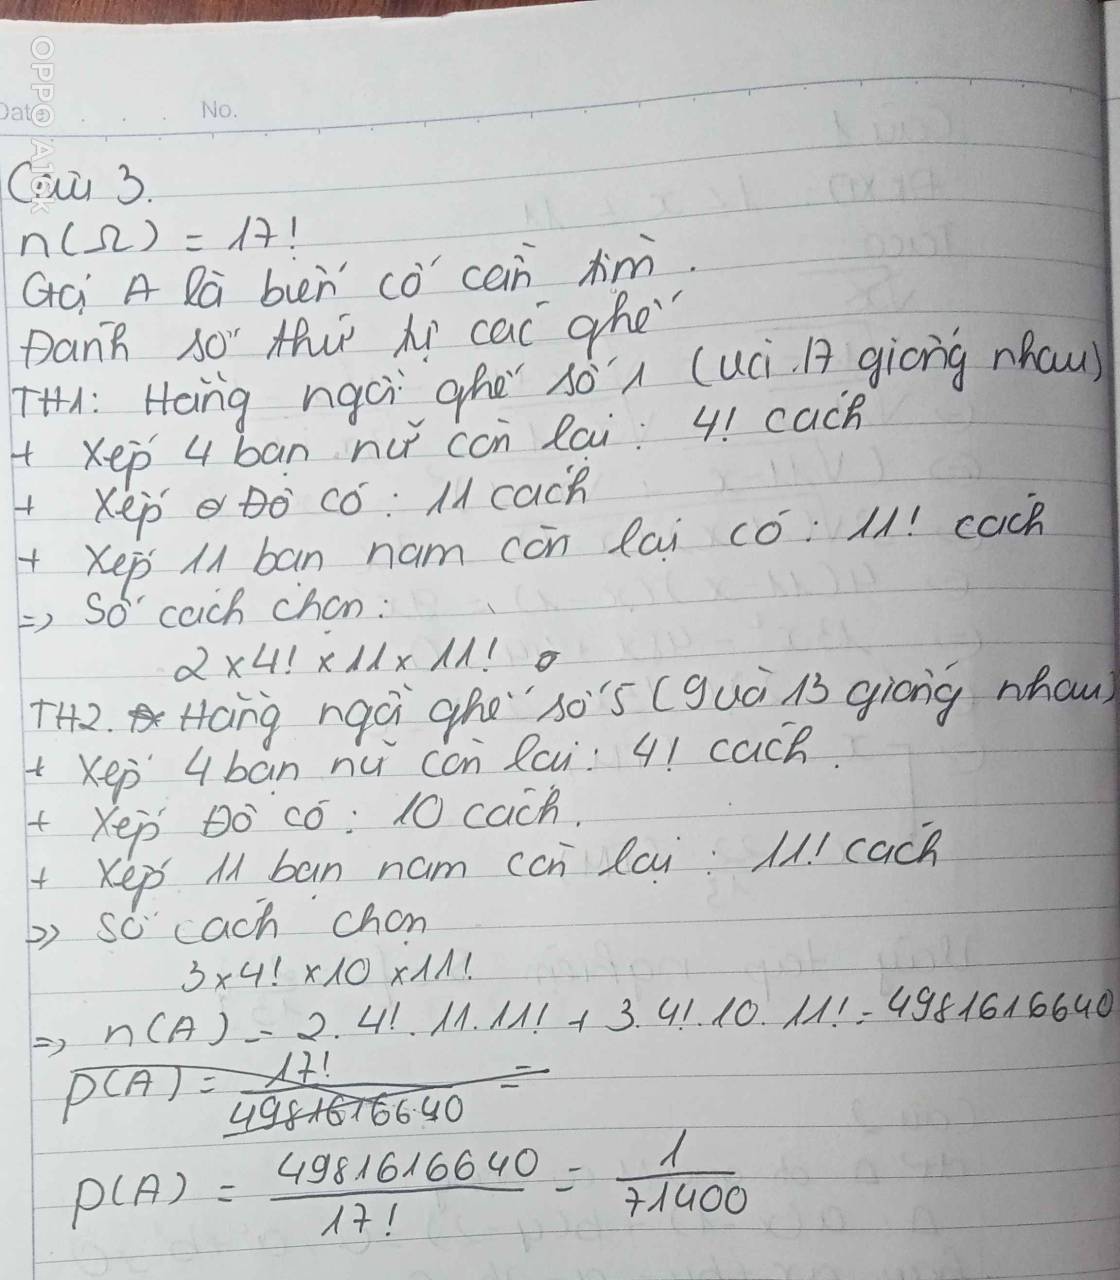 OPPO A16k
Date . . . No.
Câu 3.
n(Ω) = 17!
Gọi A là biến cố cần tìm.
Đánh số thứ tự các ghế
TH1: Hằng ngồi ghế số 1 (với 17 giống nhau)
+ Xếp 4 bạn nữ còn lại: 4! cách
+ Xếp Độ có: 11 cách
+ Xếp 11 bạn nam còn lại có: 11! cách
=> Số cách chọn:
2 x 4! x 11 x 11!
TH2. Hằng ngồi ghế số 5 (9 và 13 giống nhau)
+ Xếp 4 bạn nữ còn lại: 4! cách.
+ Xếp Độ có: 10 cách.
+ Xếp 11 bạn nam còn lại: 11! cách
=> số cách chọn
3 x 4! x 10 x 11!
=> n(A) = 2. 4!. 11. 11! + 3. 4!. 10. 11! = 4981616640
P(A) = 17! / 4981616640 =
P(A) = 4981616640 / 17! = 1 / 71400